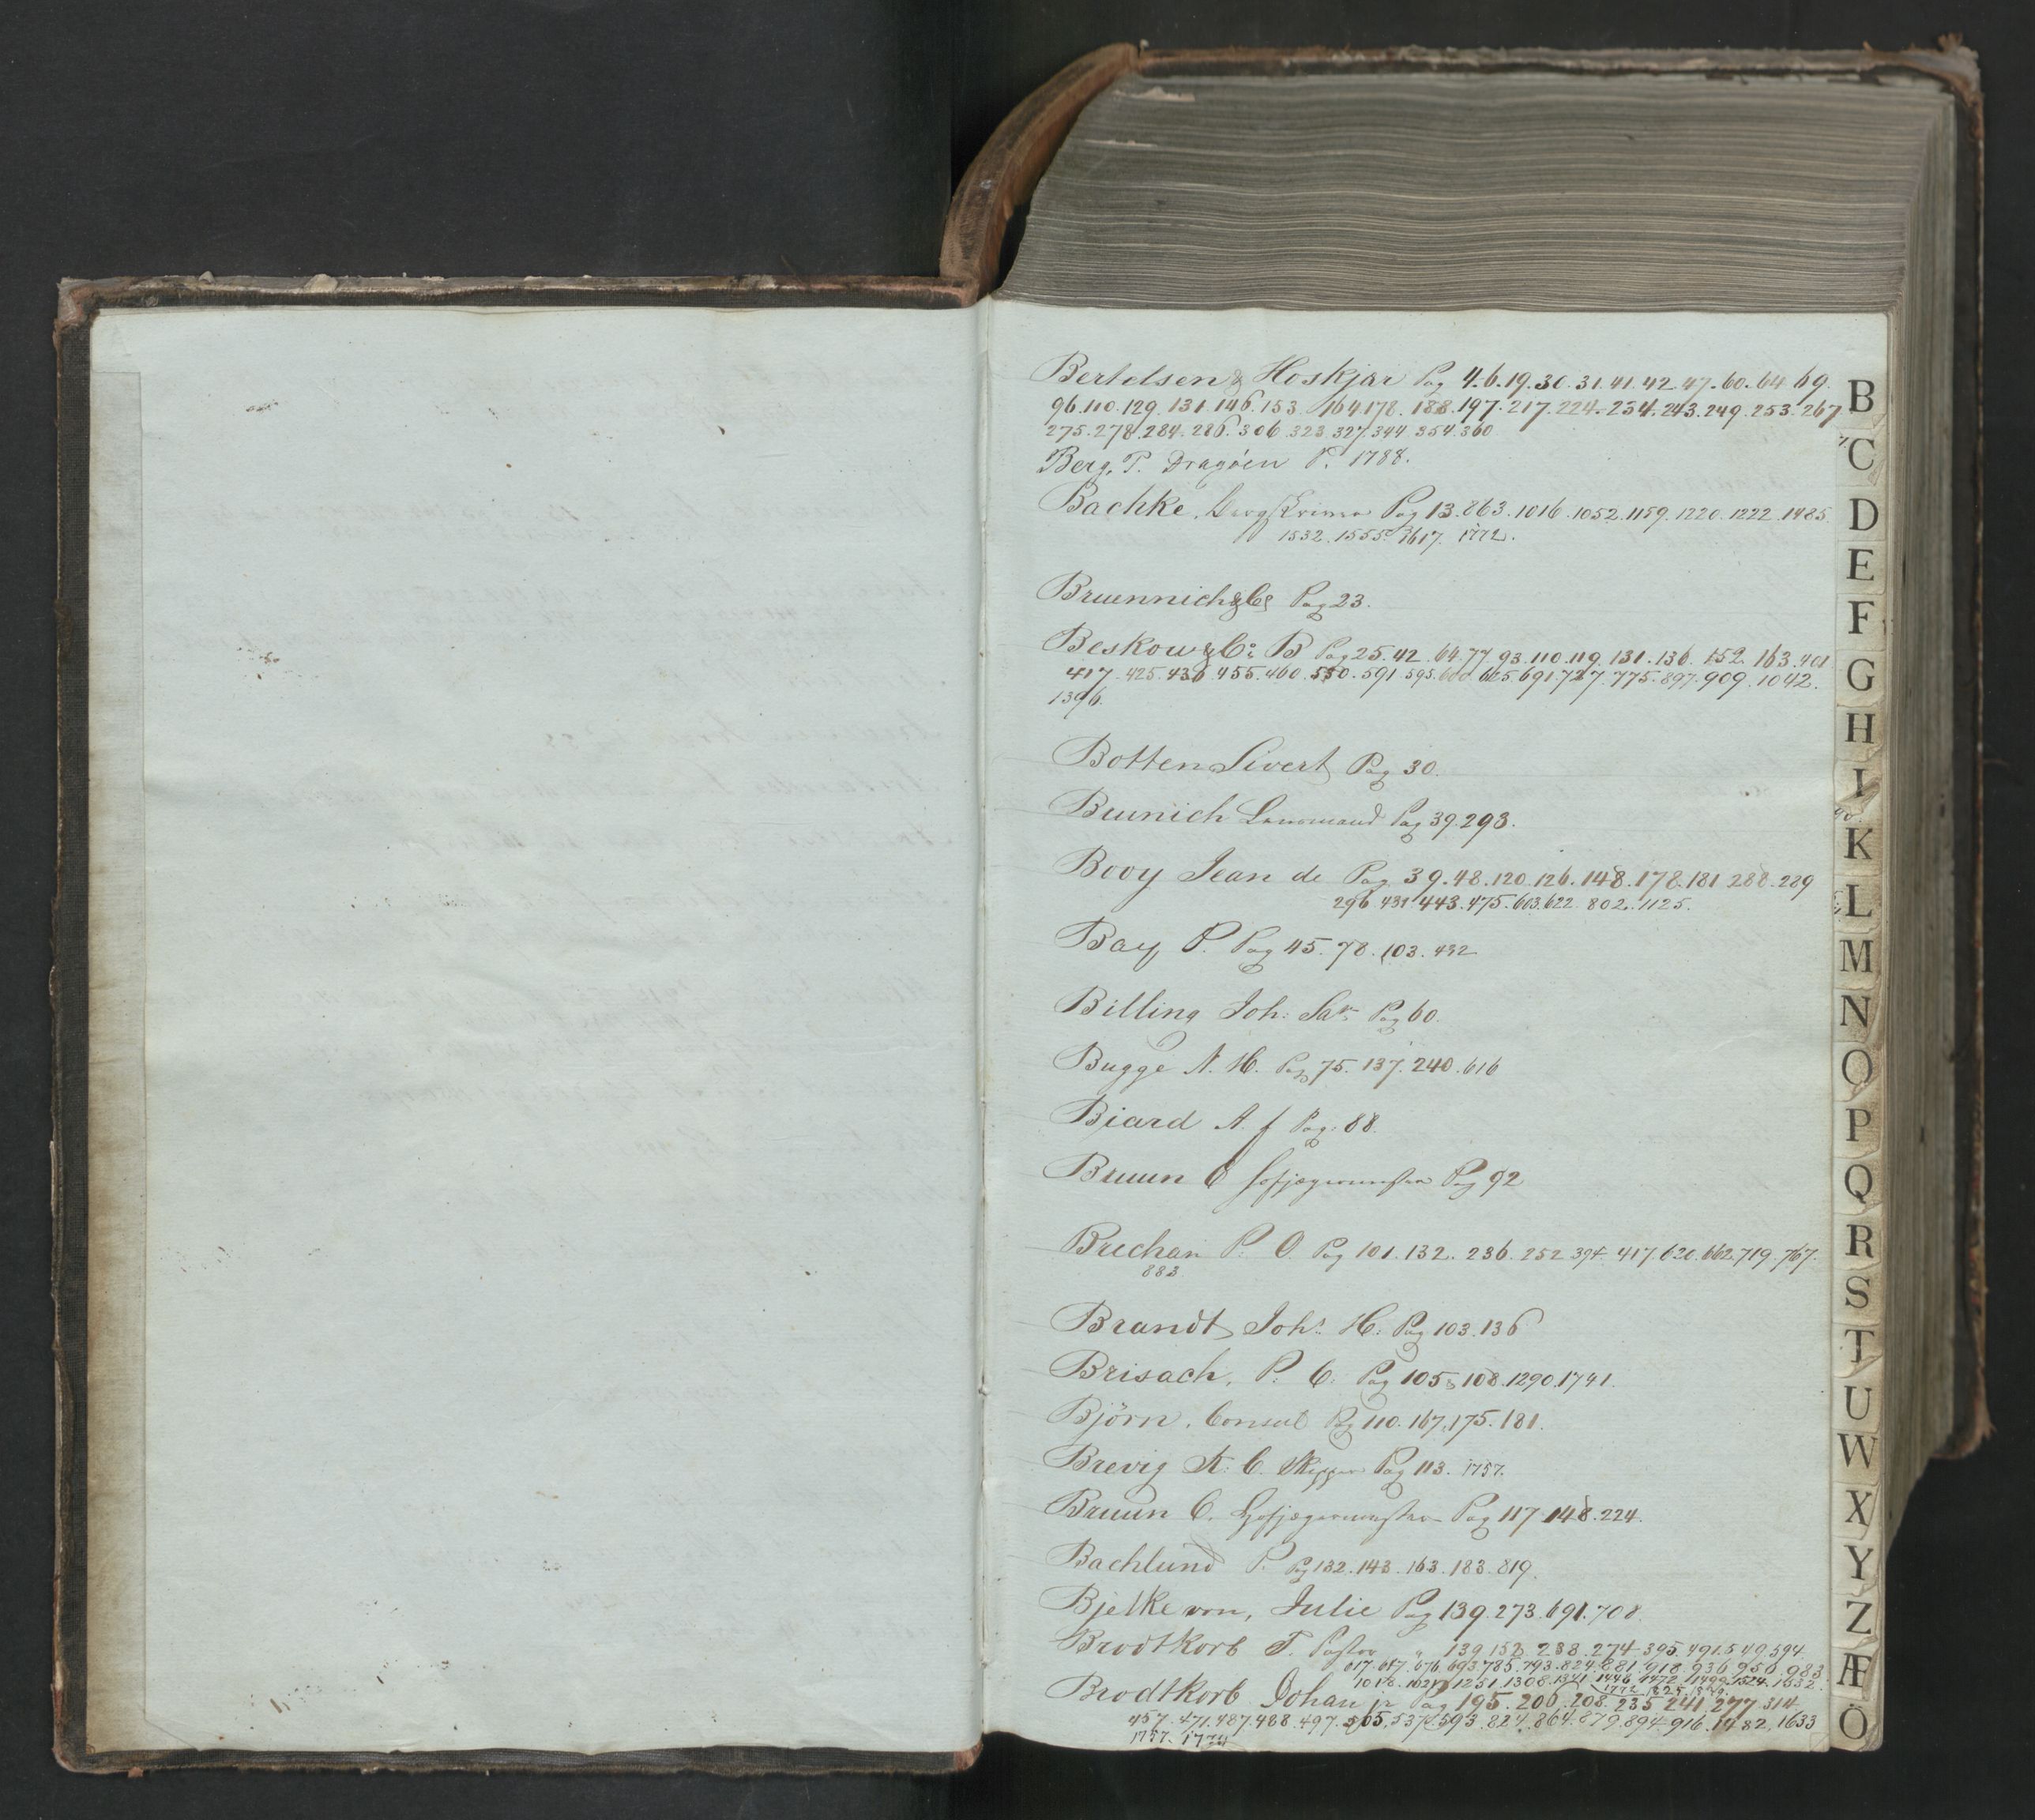 Bertelsen & Hoskjær Pag 4.6.19.30.31.41.42.47.60.64.69.
96.110.129.131.146.153.164.178.188.197.217.224.234.243.249.253.267
275.278.284.286.306.323.327.344.354.360
Berg, P. Dragöen P. 1788.
Bachke, Pag 13.863.1016.1052.1159.1220.1222.1485.
1532.1555.1617.1772.
Bruennich & Co Pag 23.
Beskow & Co B Pag 25.42.64.77.93.110.119.131.136.152.163.401
417.425.436.455.460.530.591.595.600.665.691.727.775.897.909.1042.
1396.
Botten Sivert Pag 30.
Brunich Pag 39.293.
Booy Jean de Pag 39.48.120.126.148.178.181.288.289
296.431.443.475.603.622.802.1125.
Bay P. Pag 45.78.103.432
Billing Joh: Pag 60.
Bugge N. H. Pag 75.137.240.616
Biard A. f Pag: 88.
Bruun C Hofjægermester Pag 92
Brechan P: O. Pag 101.132.236.252.394.417.620.662.719.767.
883
Brandt Johs. H: Pag 103.136
Brisach, P. C: Pag 105 & 108.1290.1741.
Björn, Consul Pag 110.167.175.181.
Brevig K: C. Skipper Pag 113.1757.
Bruun C. Hofjægermester Pag 117.148.224.
Bachlund P. Pag 132.143.163.183.819.
Bjelke von, Julie Pag 139.273.691.708.
Brodtkorb T. Pastor " 139.153.238.274.395.491.549.594
617.647.676.693.785.793.824.881.918.936.950.983
1018.1021.1251.1308.1341.1446.1472.1499.1524.1832.
Brodtkorb Johan jr Pag 195.200.208.235.241.277.314
457.471.487.488.497.505.537.593.824.864.879.894.916.1482.1633
1757.
B
C
D
E
F
G
H
I
K
L
M
N
O
P
Q
R
S
T
U
W
X
Y
Z
Æ
Ö